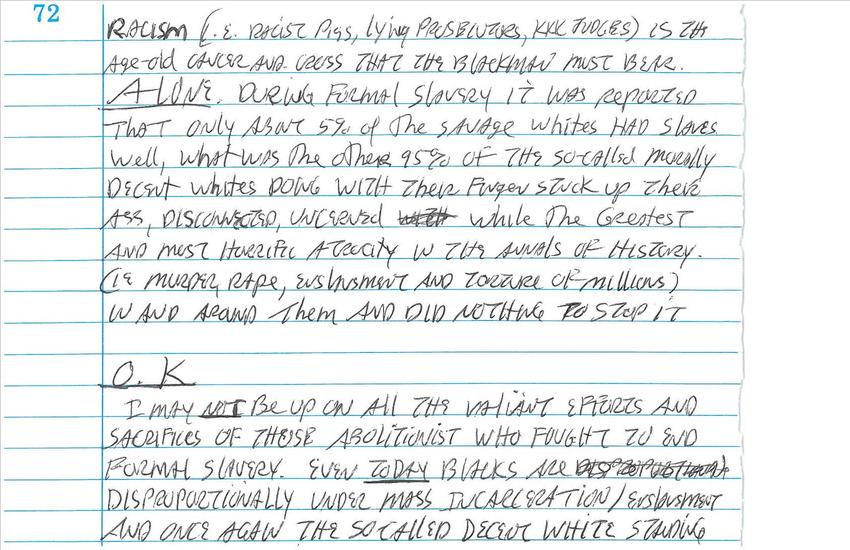 72
RACISM (i.E. RACIST Pigs, lying PROSECUTORS, KKK JUDGES) IS TH
Age-old CANCER AND CROSS THAT THE BLACKMAN MUST BEAR.
ALONE. DURING FORMAL SLAVERY IT WAS REPORTED
THAT ONLY ABOUT 5% of The SAVAGE WHITES HAD SLAVES
Well, WHAT WAS The OTHER 95% OF THE SO-CALLED MORALLY
DECENT WHITES DOING WITH Their Finger STUCK UP Their
ASS, DISCONNECTED, UNCERVED while The GREATEST
AND MOST HORRIFIC ATROCITY IN THE ANNALS OF HISTORY.
(IE MURDER, RAPE, ENSLAVSMENT AND TORTURE OF millions)
IN AND AROUND Them AND DID NOTHING TO STOP IT
O.K
I MAY NOT BE UP ON ALL THE VALIANT EFFORTS AND
SACRIFICES OF THEISE ABOLITIONIST WHO FOUGHT TO END
FORMAL SLAVERY. EVEN TODAY BLACKS ARE
DISPROPORTIONALLY UNDER MASS INCARCERATION/ENSLAVSMENT
AND ONCE AGAIN THE SO CALLED DECENT WHITE STANDING